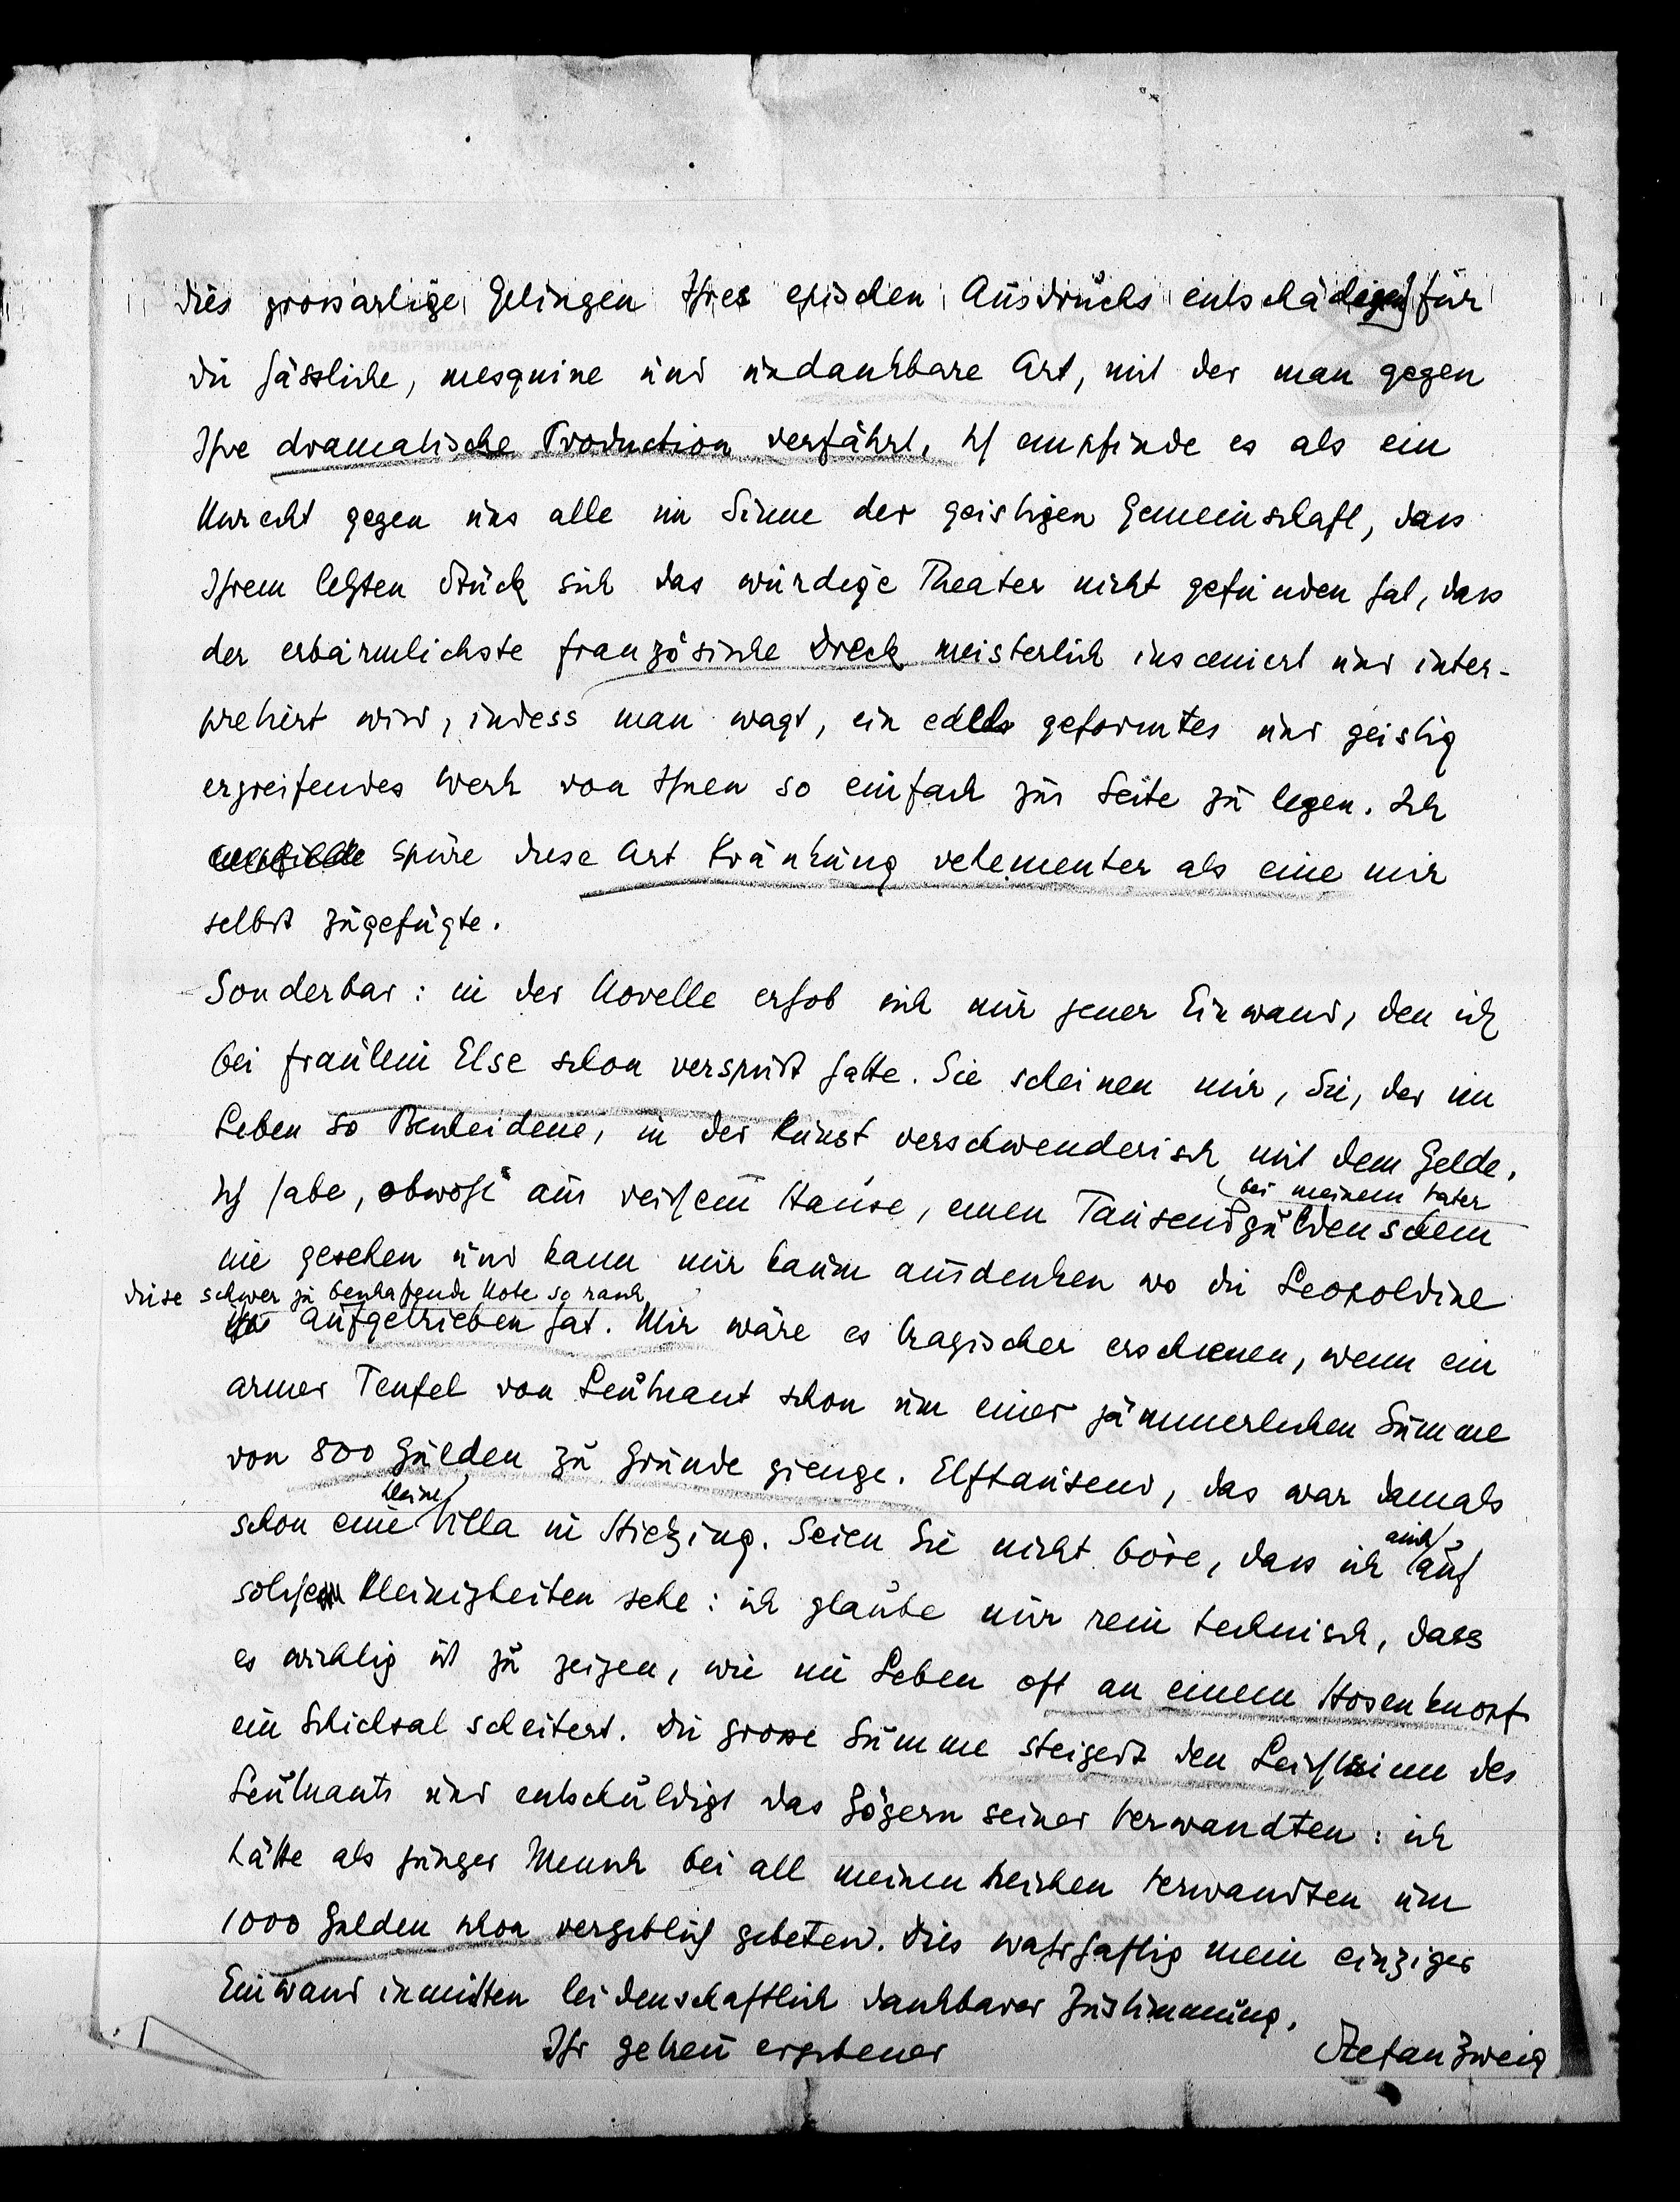 dies grossartige Gelingen Ihres epischen Ausdrucks entschädigen für
die hässliche, mesquine und undankbare Art, mit der man gegen
Ihre dramatische Production verfährt. Ich empfinde es als ein
Unrecht gegen uns alle im Sinne der geistigen Gemeinschaft, dass
Ihrem letzten Stück sich das würdige Theater nicht gefunden hat, dass
der erbärmlichste französische Dreck meisterlich insceniert und inter-
pretiert wird, indess man wagt, ein edles geformtes und geistig
ergreifendes Werk von Ihnen so einfach zur Seite zu legen. Ich
empfinde spüre diese Art Kränkung vehementer als eine mir
selbst zugefügte.
Sonderbar: in der Novelle erhob sich mir jener Einwand, den ich
bei Fräulein Else schon verspürt hatte. Sie scheinen mir, Sie, der im
Leben so Bescheidene, in der Kunst verschwenderisch mit dem Gelde.
Ich habe, obwohl aus reichem Hause, einen Tausendguldenschein
bei meinem Vater
nie gesehen und kann mir kaum ausdenken wo die Leopoldine
diese schwer zu beschaffende Note so rasch
aufgetrieben hat. Mir wäre es tragischer erschienen, wenn ein
armer Teufel von Leutnant schon um einer jämmerlichen Summe
von 800 Gulden zu Grunde gienge. Elftausend, das war damals
schon eine kleine Villa in Hietzing. Seien Sie nicht böse, dass ich auch auf
solche Kleinigkeiten sehe: ich glaube nur rein technisch, dass
es wichtig ist zu zeigen, wie im Leben oft an einem Hosenknopf
ein Schicksal scheitert. Die grosse Summe steigert den Leichtsinn des
Leutnants und entschuldigt das Zögern seiner Verwandten: ich
hätte als junger Mensch bei all meinen reichen Verwandten um
1000 Gulden schon vergeblich gebeten. Dies wahrhaftig mein einziger
Einwand inmitten leidenschaftlich dankbarer Zustimmung.
Ihr getreu ergebener
Stefan Zweig